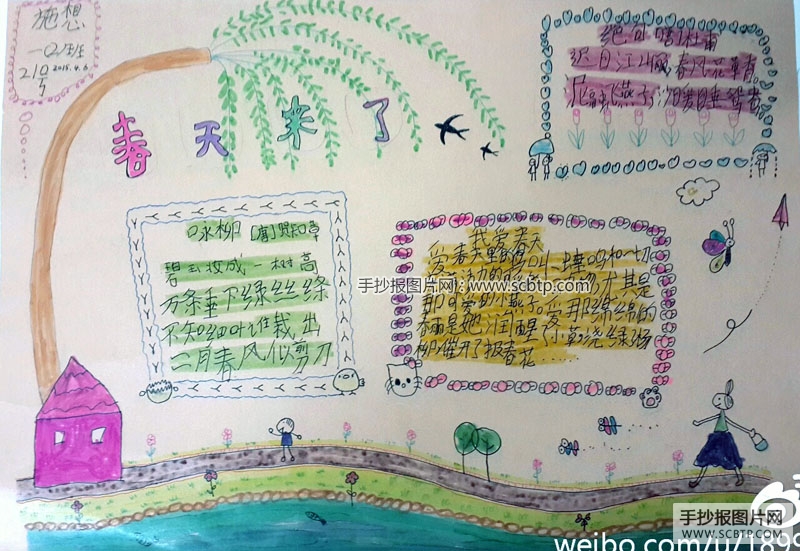 施想
一〇2班
210号
2015.4.6
春天来了
绝句 唐 杜甫
迟日江山丽 春风花草香
泥融飞燕子 沙暖睡鸳鸯
咏柳 [唐]贺知章
碧玉妆成一树高
万条垂下绿丝绦
不知细叶谁裁出
二月春风似剪刀
我爱春天
爱春天里的 小 和一切
尤其是
那可爱的小燕子。爱那绵绵的
春雨是她 润醒了小草浇绿杨
柳催开了报春花……
手抄报图片网：www.scbtp.com
手抄报图片网
WWW.SCBTP.COM
weibo.com/u/1899